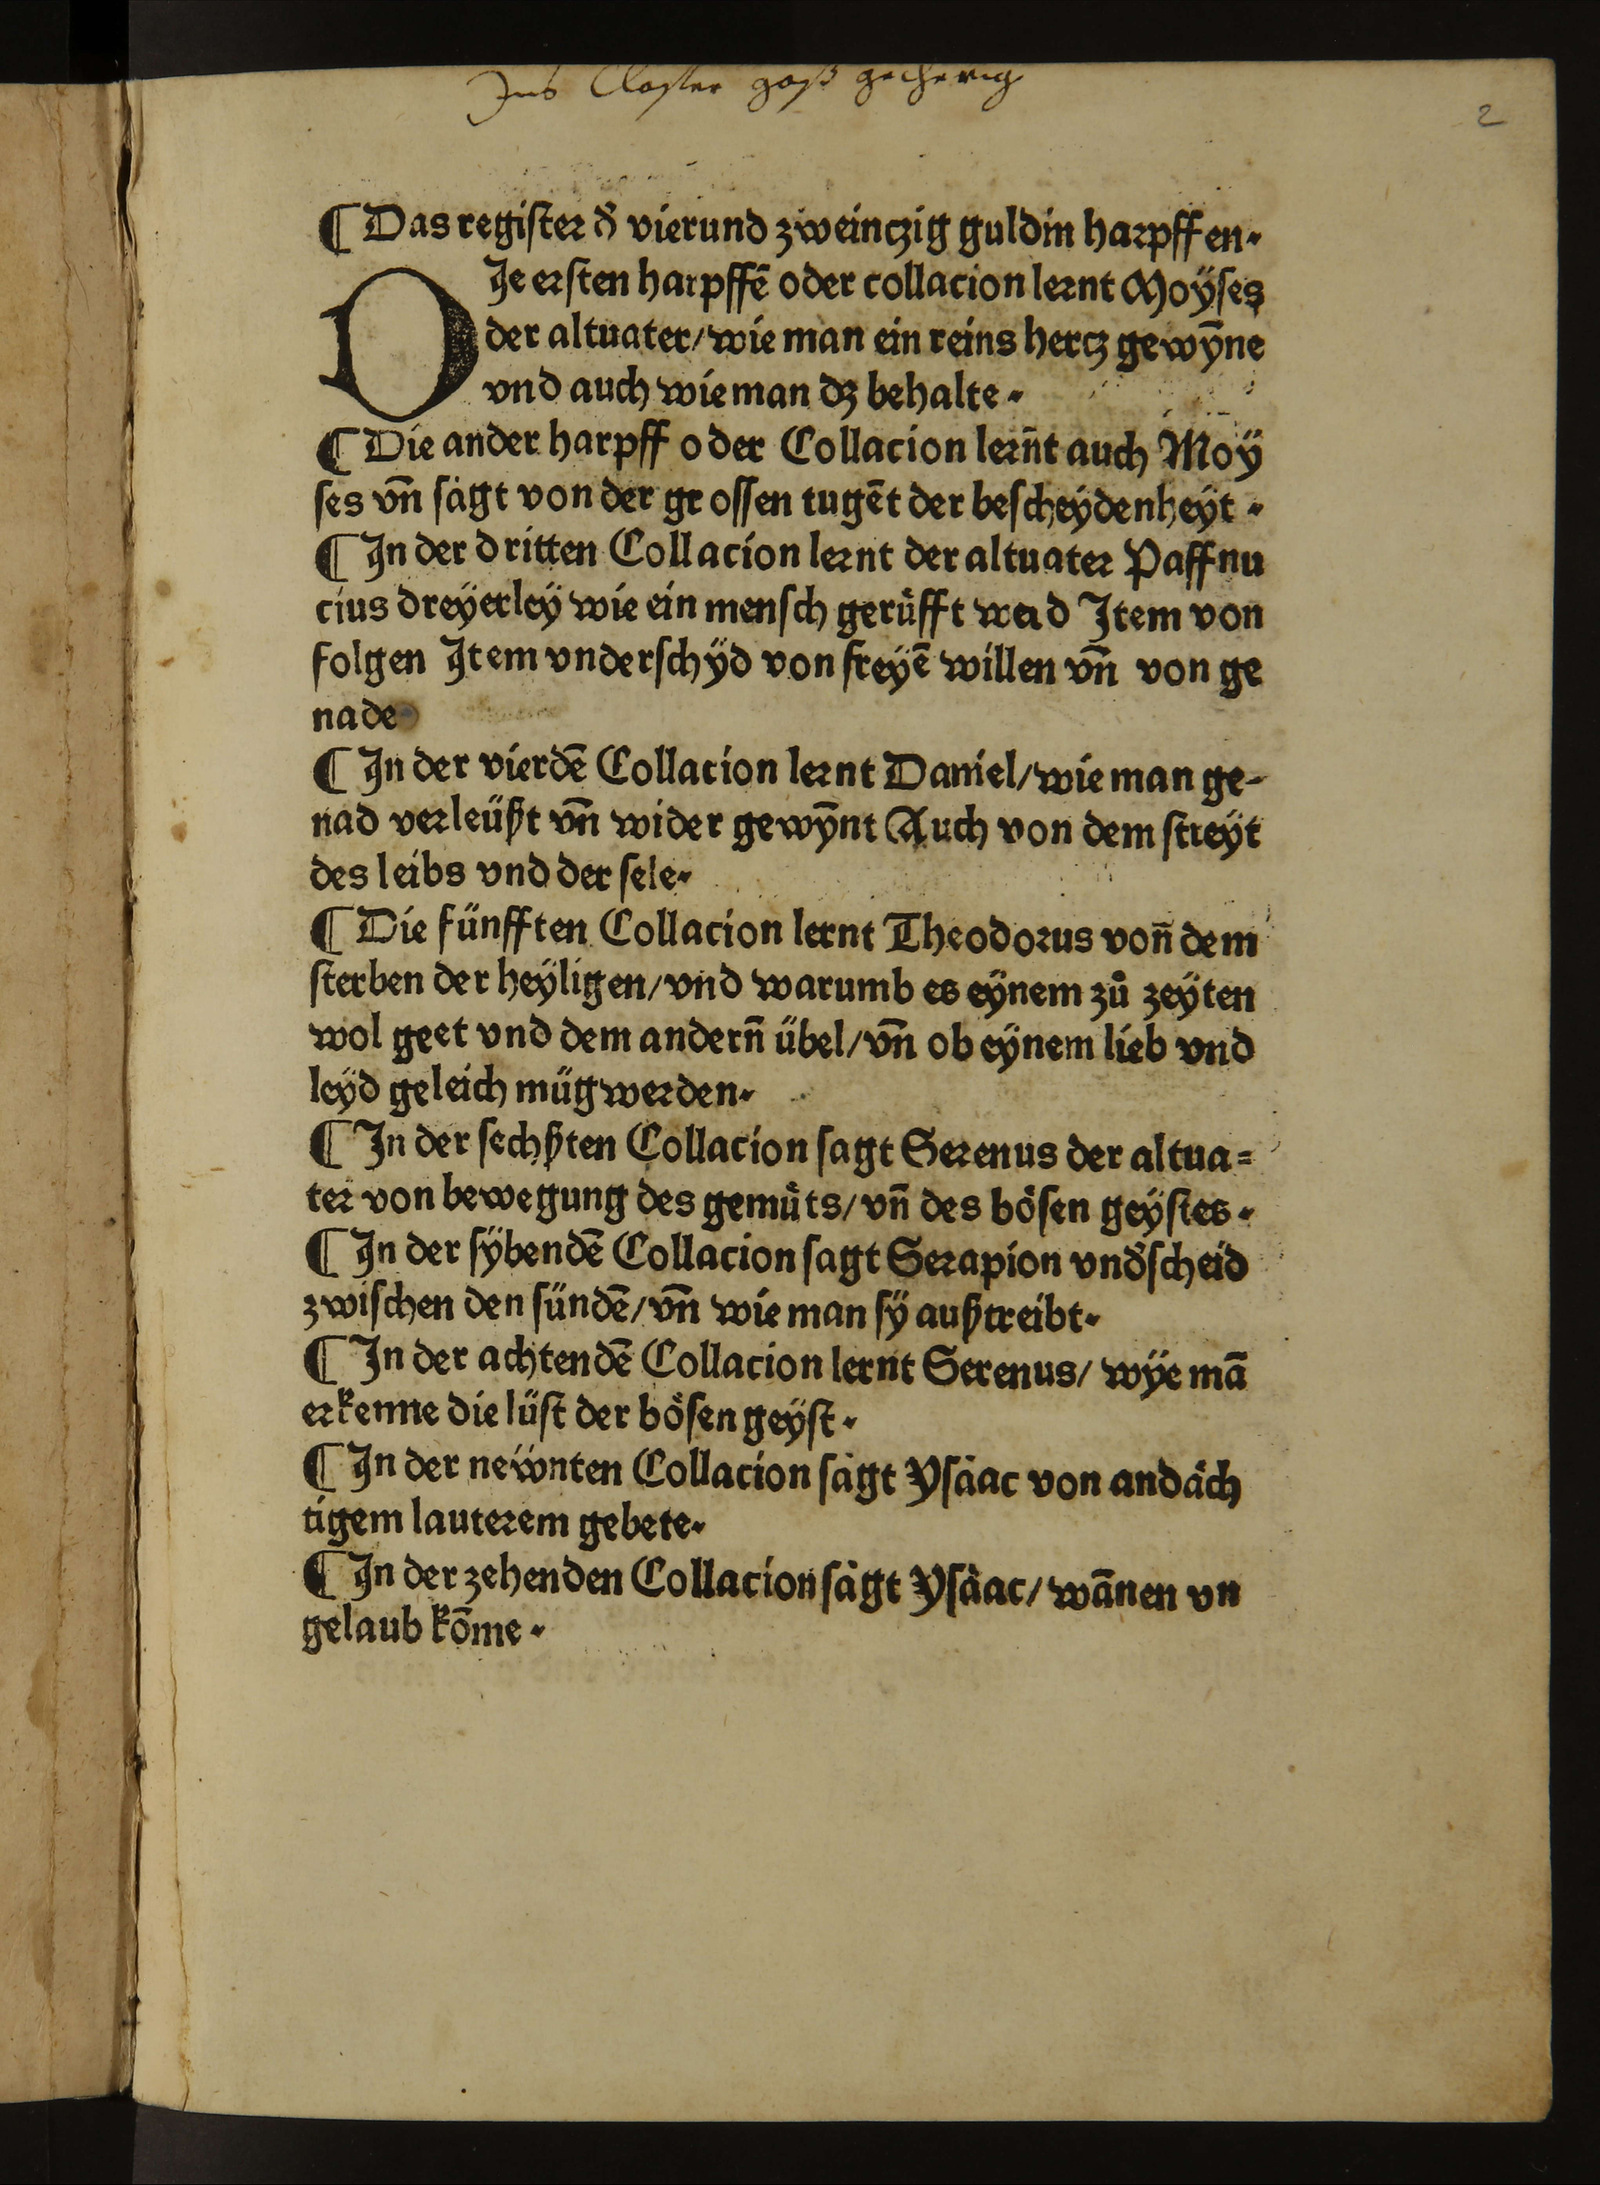 Ins Closter
2
¶ Das register d̕ vierund zweinczig guldin harpffen.
DIe ersten harpffē oder collacion lernt Moÿses
der altuater/wie man ein reins hercz gewȳne
vnd auch wie man dz behalte.
¶ Die ander harpff oder Collacion lern̄t auch Moÿ
ses vn̄ sagt von der grossen tugēt der bescheÿdenheÿt.
¶ In der dritten Collacion lernt der altuater Paffnu
cius dreÿerleÿ wie ein mensch gerüfft werd Item von
folgen Item vnderschÿd von freÿē willen vn̄ von ge
nade.
¶ In der vierdē Collacion lernt Daniel/wie man ge-
nad verleüßt vn̄ wider gewȳnt Auch von dem streÿt
des leibs vnd der sele.
¶ Die fünfften Collacion lernt Theodorus von̄ dem
sterben der heÿligen/vnd warumb es eÿnem zů zeÿten
wol geet vnd dem andern̄ übel/vn̄ ob eÿnem lieb vnd
leÿd geleich müg werden.
¶ In der sechßten Collacion sagt Serenus der altua=
ter von bewegung des gemüts/vn̄ des bösen geÿstes.
¶ In der sÿbendē Collacion sagt Serapion vnd̕scheid
zwischen den sündē/vn̄ wie man sÿ außtreibt.
¶ In der achtendē Collacion lernt Serenus/ wÿe mā
erkenne die lüst der bösen geÿst.
¶ In der neẅnten Collacion sägt Ysäac von andäch
tigem lauterem gebete.
¶ In der zehenden Collacion sägt Ysäac/ wānen vn
gelaub kōme.